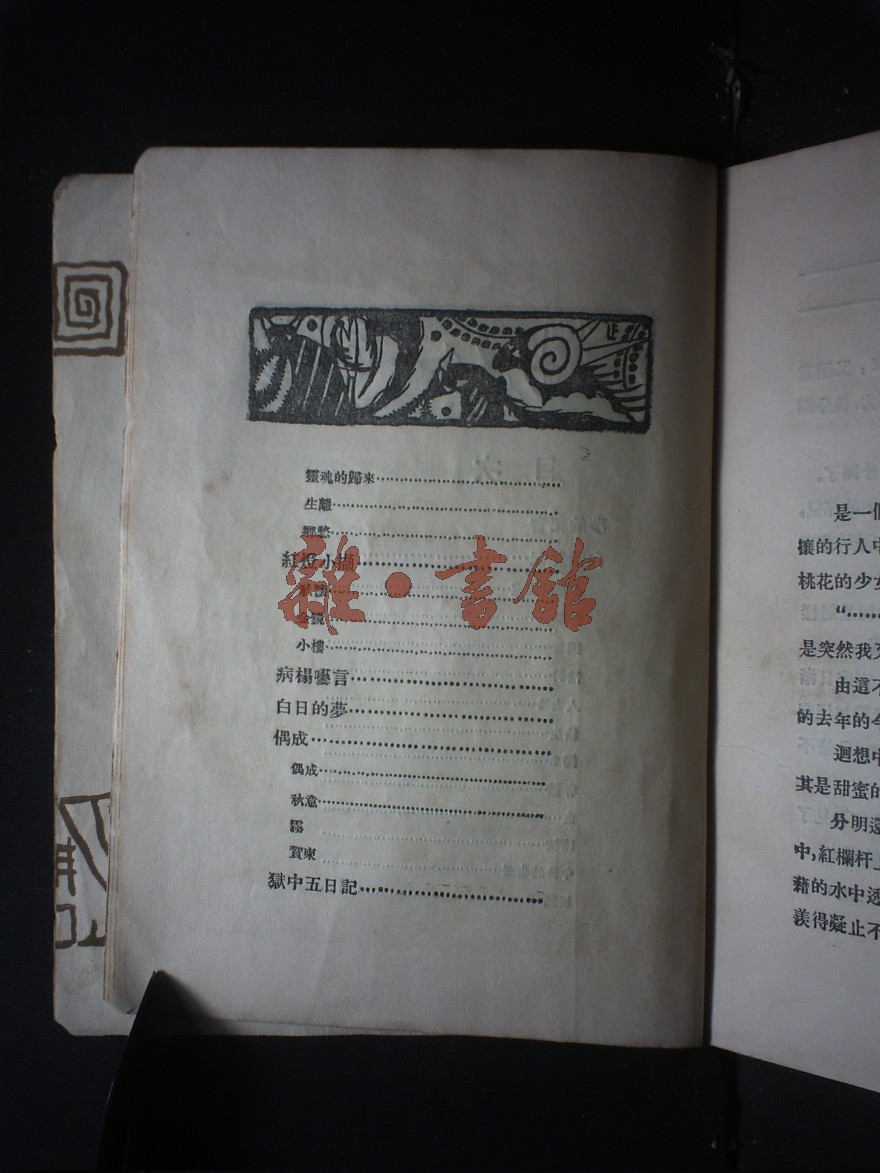 靈魂的歸來
生離
鄉愁
紅燈小擷
金鏡
小樓
病榻囈言
白日的夢
偶成
偶成
秋意
霧
賀柬
獄中五日記
雜·書館
是一個
攘的行人中
桃花的少女
“……
是突然我
由這不
的去年的今
迴想中
其是甜蜜的
分明還
中,紅欄杆
藉的水中透
羨得凝止不